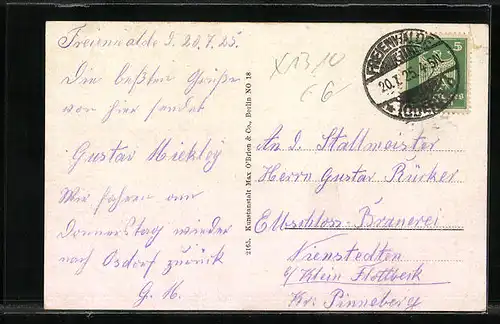 Freienwalde d. 20.7.25.
Die besten Grüße
von hier sendet
Gustav Miekley
Wir fahren am
Donnerstag wieder
nach Osdorf zurück
G. M.
2165. Kunstanstalt Max O'Brien & Co., Berlin NO 18
XB10
66
FREIENWALDE
20.7.25. 4-5N
(ODER)
5
An d. Stallmeister
Herrn Gustav Rücker
Elbschloss-Brauerei
Nienstedten
b/ Klein Flottbeck
Kr. Pinneberg